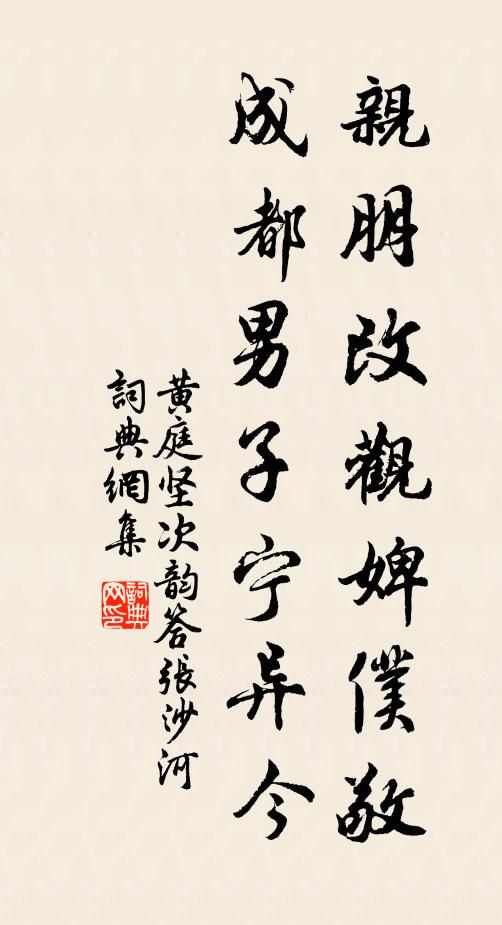 親朋改觀婢僕敬
成都男子宁异今
黄庭坚次韵答張沙河
詞典網集
詞典网印